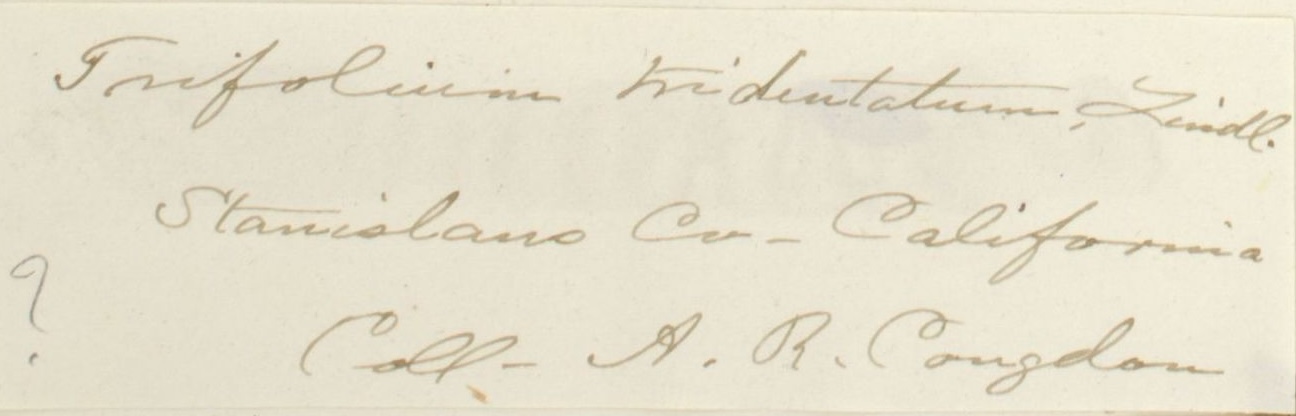 Trifolium tridentatum, Lindl.
Stanislaus Co - California
?
Coll - A. R. Congdon